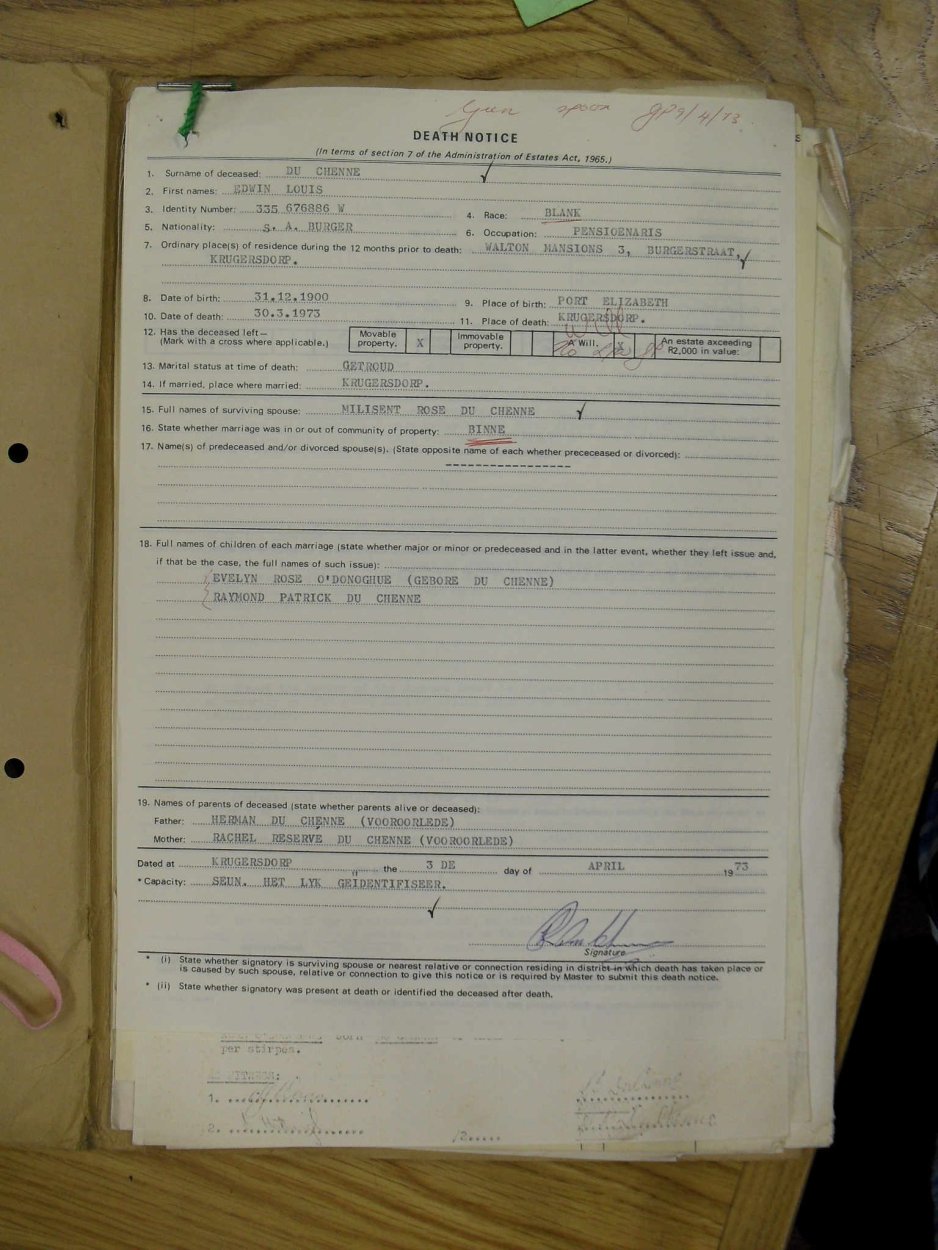 9/4/73
DEATH NOTICE
(In terms of section 7 of the Administration of Estates Act, 1965.)
1. Surname of deceased: DU CHENNE
2. First names: EDWIN LOUIS
3. Identity Number: 335 676886 W 4. Race: BLANK
5. Nationality: S. A. BURGER 6. Occupation: PENSIOENARIS
7. Ordinary place(s) of residence during the 12 months prior to death: WALTON MANSIONS 3, BURGERSTRAAT,
KRUGERSDORP.
8. Date of birth: 31.12.1900 9. Place of birth: PORT ELIZABETH
10. Date of death: 30.3.1973 11. Place of death: KRUGERSDORP.
12. Has the deceased left— Movable property. X Immovable property. A Will. X An estate exceeding R2,000 in value:
(Mark with a cross where applicable.)
Will
13. Marital status at time of death: GETROUD
14. If married, place where married: KRUGERSDORP.
15. Full names of surviving spouse: MILISENT ROSE DU CHENNE
16. State whether marriage was in or out of community of property: BINNE
17. Name(s) of predeceased and/or divorced spouse(s). (State opposite name of each whether prececeased or divorced):
------------------
18. Full names of children of each marriage (state whether major or minor or predeceased and in the latter event, whether they left issue and,
if that be the case, the full names of such issue):
EVELYN ROSE O'DONOGHUE (GEBORE DU CHENNE)
RAYMOND PATRICK DU CHENNE
19. Names of parents of deceased (state whether parents alive or deceased):
Father: HERMAN DU CHENNE (VOOROORLEDE)
Mother: RACHEL RESERVÉ DU CHENNE (VOOROORLEDE)
Dated at KRUGERSDORP the 3 DE day of APRIL 19 73
* Capacity: SEUN. HET LYK GEÏDENTIFISEER.
Signature
* (i) State whether signatory is surviving spouse or nearest relative or connection residing in district in which death has taken place or
is caused by such spouse, relative or connection to give this notice or is required by Master to submit this death notice.
* (ii) State whether signatory was present at death or identified the deceased after death.
per stirpes.
1.
2. /2.....